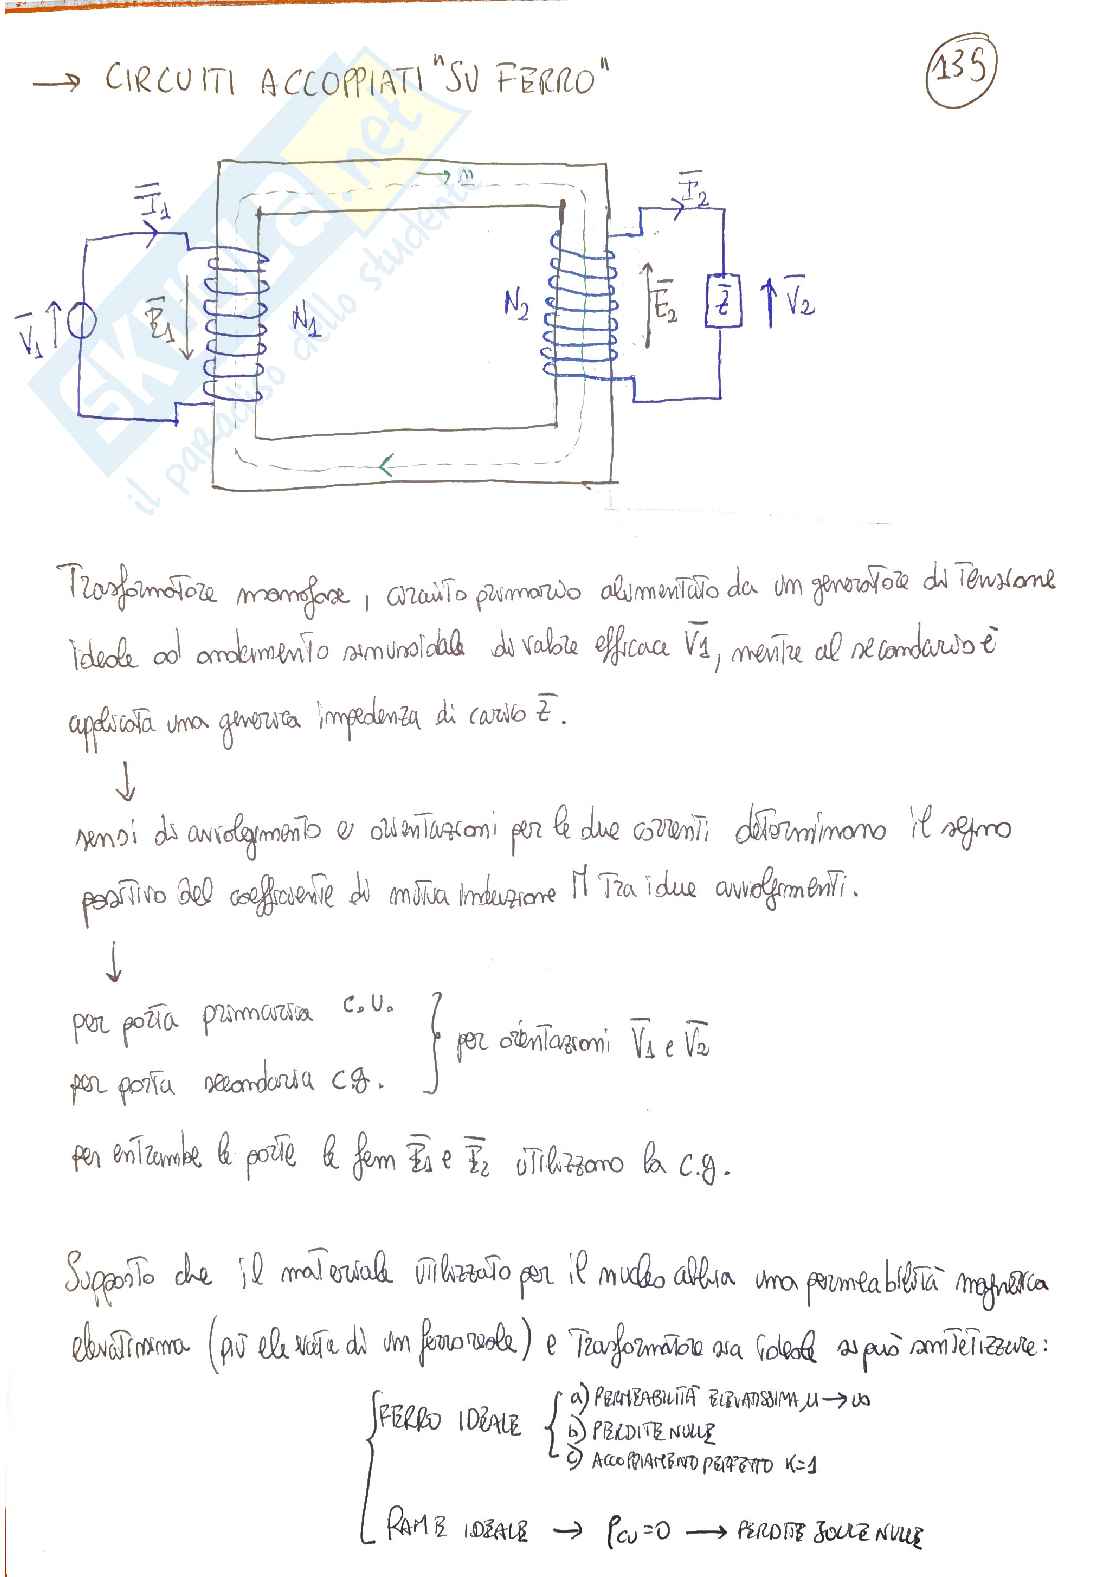 → CIRCUITI ACCOPPIATI "SU FERRO"
135
SKUOLA.net
il paradiso dello studente
I1
V1
E1
N1
u
N2
E2
I2
Z
V2
Trasformatore monofase, circuito primario alimentato da un generatore di tensione
ideale ad andamento sinusoidale di valore efficace V1, mentre al secondario è
applicata una generica impedenza di carico Z.
↓
sensi di avvolgimento e orientazioni per le due correnti determinano il segno
positivo del coefficiente di mutua induzione M tra i due avvolgimenti.
↓
per porta primaria c.u.
per porta secondaria c.g.
} per orientazioni V1 e V2
per entrambe le porte le fem E1 e E2 utilizzano la c.g.
Supposto che il materiale utilizzato per il nucleo abbia una permeabilità magnetica
elevatissima (più elevata di un ferro reale) e trasformatore sia ideale si può sintetizzare:
FERRO IDEALE { a) PERMEABILITÀ ELEVATISSIMA, μ → ∞
b) PERDITE NULLE
c) ACCOPPIAMENTO PERFETTO K=1
RAME IDEALE → ρcu=0 → PERDITE JOULE NULLE